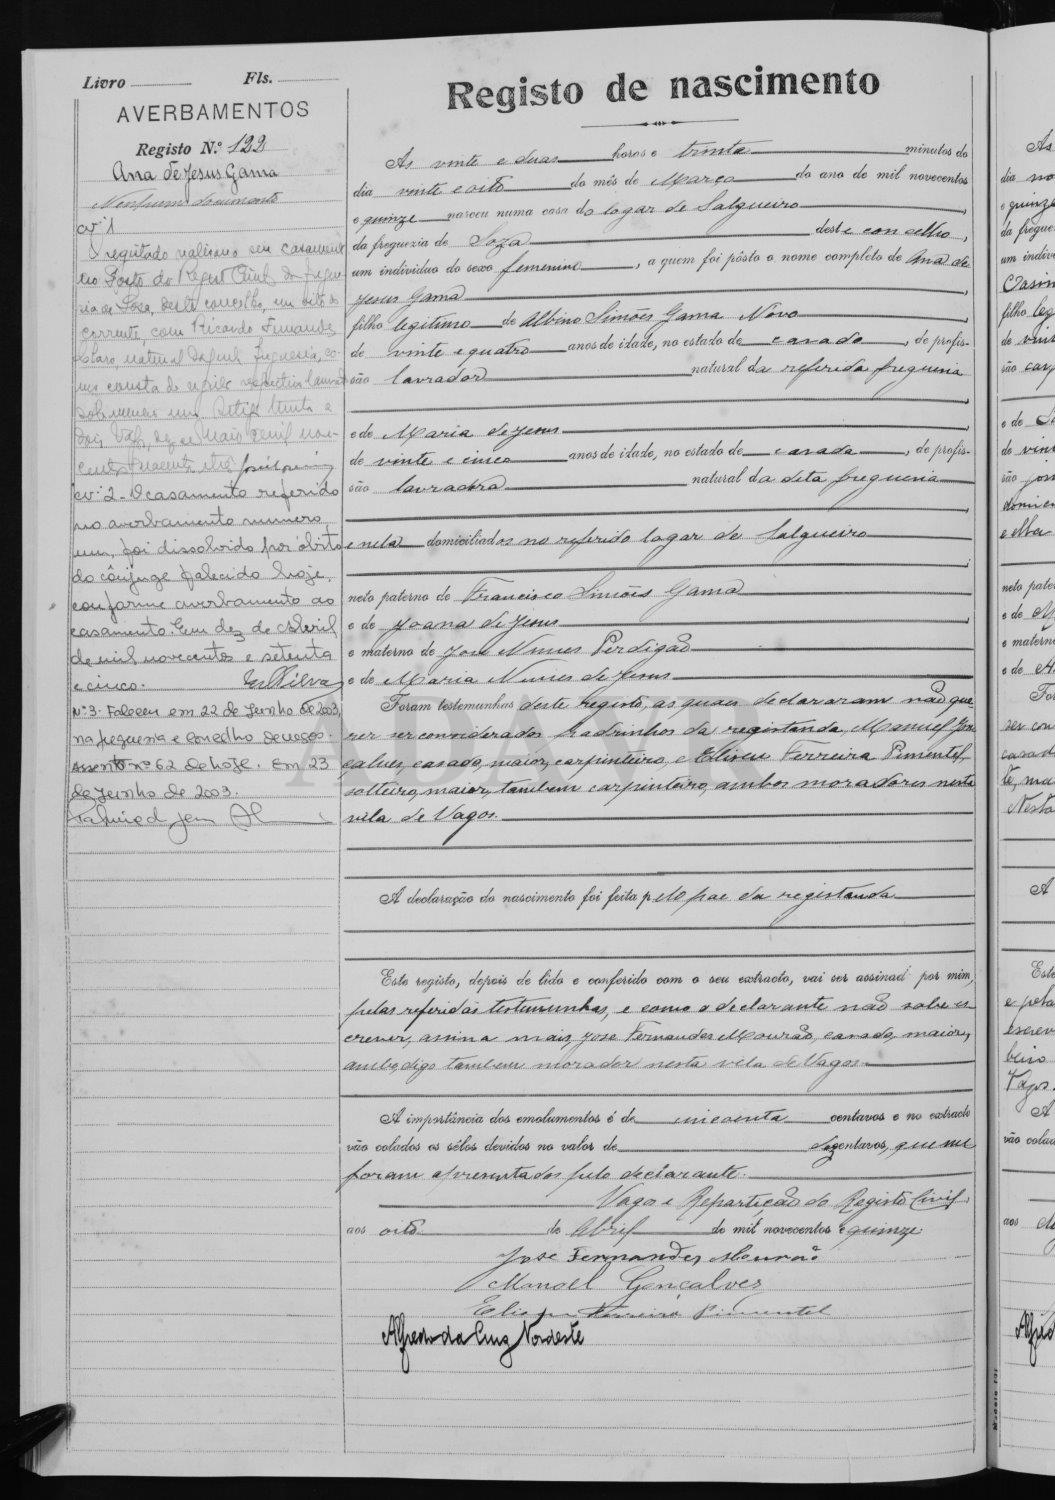 Livro Fls.
AVERBAMENTOS
Registo N.º 122
Ana de Jesus Gama
Nenhum documento
N.º 1
O registado realizou seu casamento
no Posto do Registo Civil da fregue-
sia de Soza, deste concelho, em oito do
corrente, com Ricardo Fernandes
natural daquela freguesia, co-
mo consta do respectivo
sob numero sete trinta e
dois. Vagos, dez de Maio de mil nove-
centos
N.º 2 - O casamento referido
no averbamento numero
um, foi dissolvido por óbito
do cônjuge falecido hoje,
conforme averbamento ao
casamento. Em dez de Abril
de mil novecentos e setenta
e cinco. Silva
N.º 3 - Faleceu em 22 de Junho de 2003,
na freguesia e concelho de Vagos.
Assento nº 62 de hoje. Em 23
de Junho de 2003.
Registo de nascimento
Ás vinte e duas horas e trinta minutos do
dia vinte e oito do mês de Março do ano de mil novecentos
e quinze nasceu numa casa do logar de Salgueiro,
da freguezia de Soza deste concelho,
um individuo do sexo femenino, a quem foi pôsto o nome completo de Ana de
Jesus Gama,
filho legitimo de Albino Simões Gama Novo,
de vinte e quatro anos de idade, no estado de casado, de profis-
são lavrador natural da referida freguesia
e de Maria de Jesus,
de vinte e cinco anos de idade, no estado de casada, de profis-
são lavradora natural da dita freguesia
e nela domiciliados no referido logar de Salgueiro;
neto paterno de Francisco Simões Gama
e de Joana de Jesus,
e materno de José Nunes Perdigão
e de Maria Nunes de Jesus
Foram testemunhas deste registo, as quaes declararam não que-
rer ser considerados padrinhos da registanda, Manuel Gon-
çalves, casado, maior, carpinteiro, e Eliseu Ferreira Pimentel,
solteiro, maior, tambem carpinteiro, ambos moradores nesta
vila de Vagos.
A declaração do nascimento foi feita pelo pae da registanda
Este registo, depois de lido e conferido com o seu extracto, vai ser assinad por mim,
pelas referidas testemunhas, e como o declarante não sabe es-
crever, assina mais, José Fernandes Mourão, casado, maior,
digo tambem morador nesta vila de Vagos.
A importância dos emolumentos é de cincoenta centavos e no extracto
vão colados os sêlos devidos no valor de dez centavos, que me
foram apresentados pelo declarante.
Vagos e Repartição do Registo Civil,
aos oito de Abril de mil novecentos e quinze.
José Fernandes Mourão
Manoel Gonçalves
Eliseu Ferreira Pimentel
Alfredo da Cruz Nordeste
ADAVR